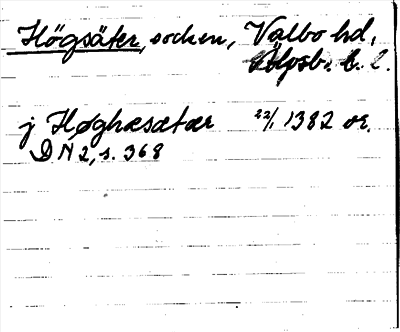 Högsäter, socken, Valbo hd,
Älvsb. l.
j Høghæsætær 22/1 1382 or.
DN 2, s. 368